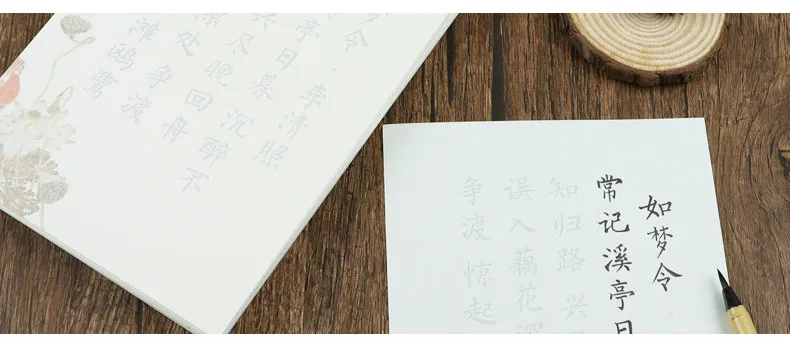 梦令·李清照
亭日暮沉醉不
兴尽晚回舟
深处争渡
滩鸥鹭
如梦令
常记溪亭日
知归路 兴
误入藕花深
争渡 惊起